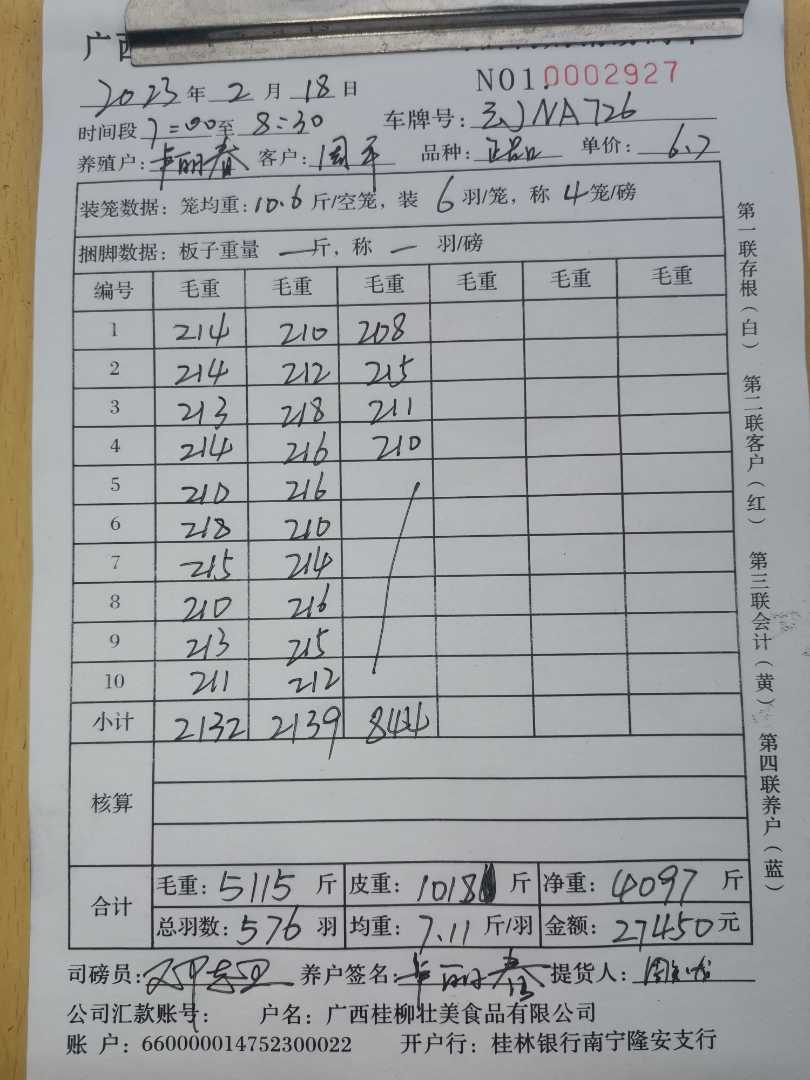 广西
NO1.0002927
2023年2月18日
时间段7:00至8:30 车牌号: NA726
养殖户:卓丽春 客户:周平 品种: 单价:6.7
装笼数据: 笼均重:10.6斤/空笼, 装6羽/笼, 称4笼/磅
捆脚数据: 板子重量一斤, 称一羽/磅
编号 毛重 毛重 毛重 毛重 毛重 毛重
1 214 210 208
2 214 212 215
3 213 218 211
4 214 216 210
5 210 216
6 218 210
7 215 214
8 210 216
9 213 215
10 211 212
小计 2132 2139 844
核算
合计 毛重:5115斤 皮重:1018斤 净重:4097斤
总羽数:576羽 均重:7.11斤/羽 金额:27450元
司磅员: 养户签名:卓丽春 提货人:
公司汇款账号: 户名:广西桂柳壮美食品有限公司
账 户:660000014752300022 开户行:桂林银行南宁隆安支行
第一联存根(白) 第二联客户(红) 第三联会计(黄) 第四联养户(蓝)